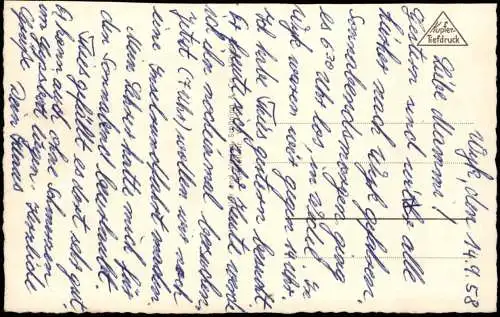 Kupfer-
Tiefdruck
Wyk, den 14.9.58
Liebe
Gestern sind wir alle
nach Wyk gefahren.
ging
es 6 30 Uhr los in Kiel. In
Wyk waren wir gegen 14 Uhr.
Ich habe gestern besucht
Es geht sehr gut. Heute werde
ich ihn nocheinmal besuchen.
Jetzt (7 Uhr) wollen wir noch
eine Inselrundfahrt machen.
Mein Lehrer hatte mich für
den Sonnabend beurlaubt.
gefällt es dort sehr gut
Er kann auch ohne Schmerzen
im Gipsbett liegen. Herzliche
Grüsse Dein Claus